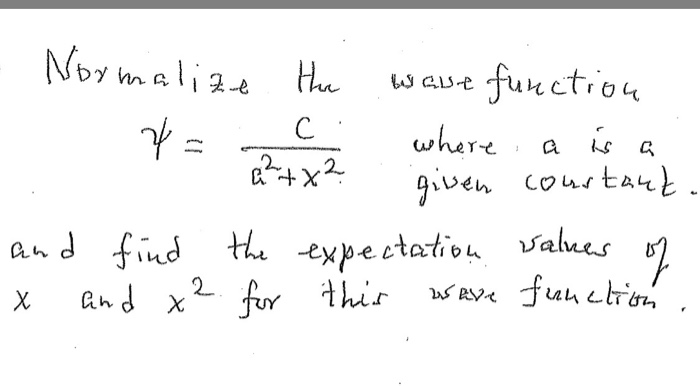 Normalize the wave function
ψ = C / a²+x² where a is a given constant.
and find the expectation values of
x and x² for this wave function.